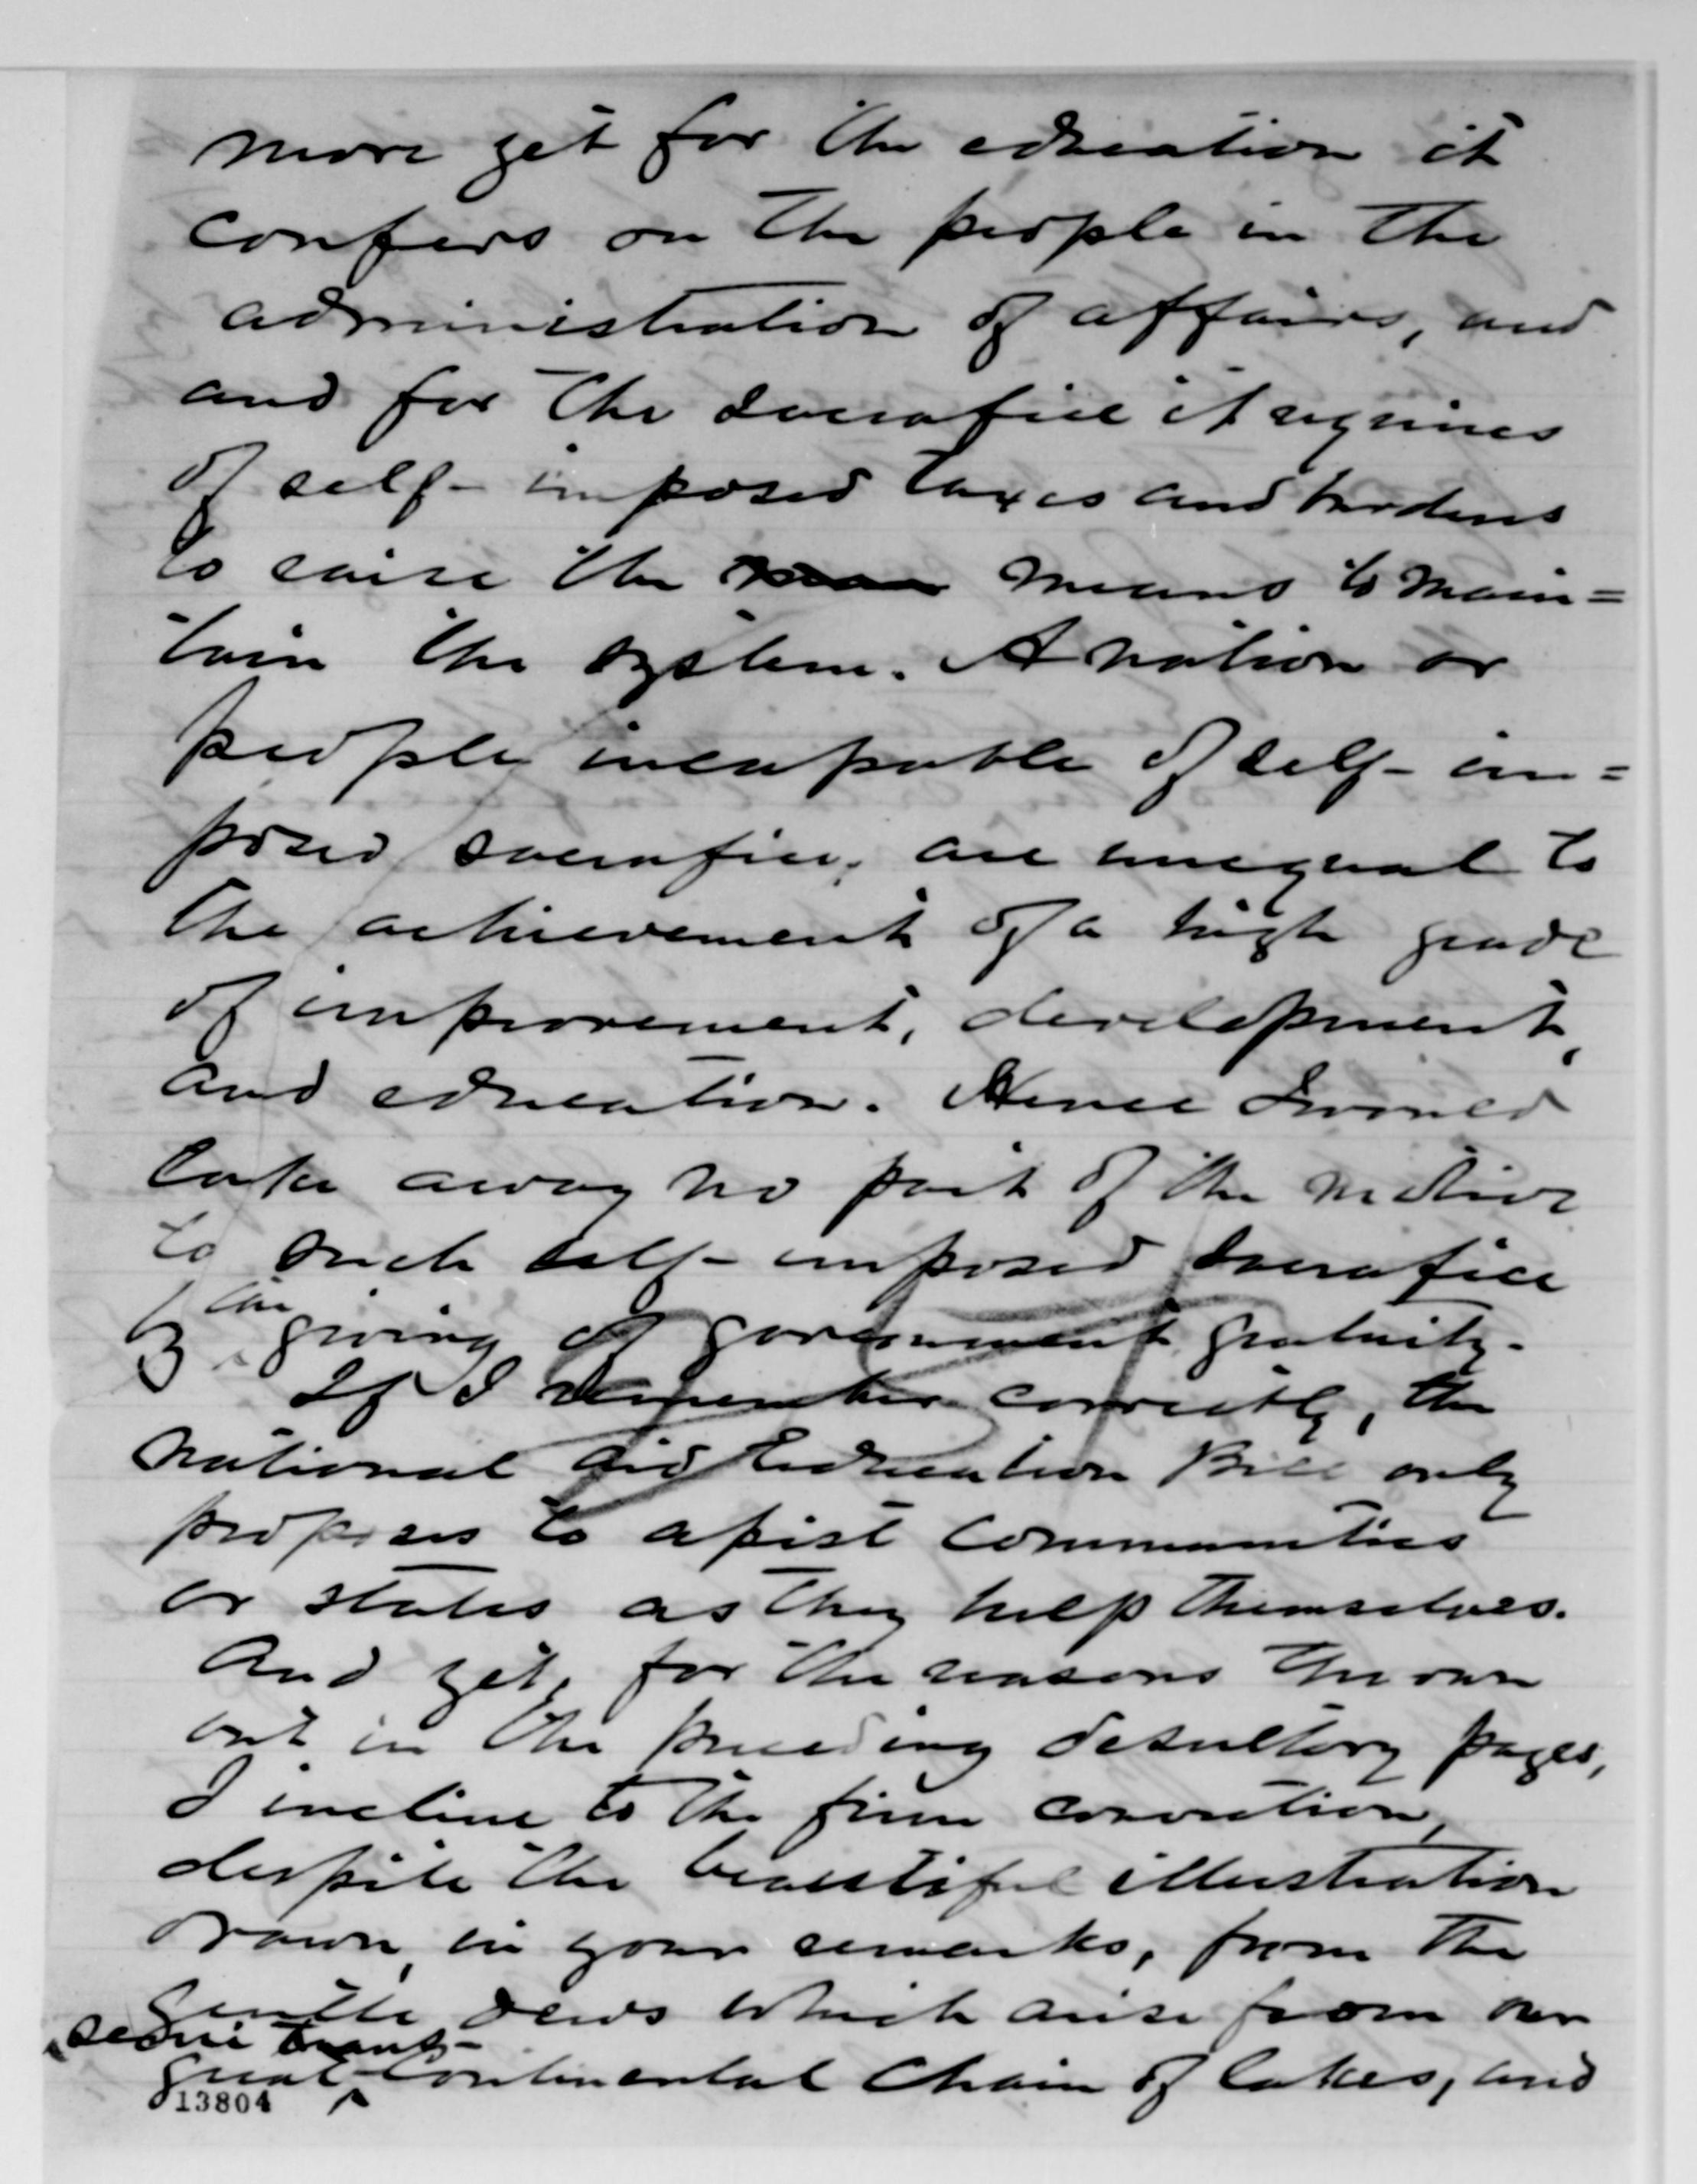 more yet for the education it
confers on the people in the
administration of affairs, and
and for the sacrafice it requires
of self-imposed taxes and burdens
to raise the means to main=
tain the system. A nation or
people incapable of self-im=
posed sacrafice, are unequal to
the achievement of a high grade
of improvement, development,
and education. Hence I would
take away no part of the motive
to such self-imposed sacrafice
by the giving of government gratuity.
If I remember correctly, the
national aid Education Bill only
proposes to assist communities
or states as they help themselves.
And yet, for the reasons thrown
out in the preceeding desultory pages,
I incline to the firm conviction,
despite the beautiful illustration
drawn, in your remarks, from the
gentle dews which arise from our
semi trans-
great continental chain of lakes, and
13804